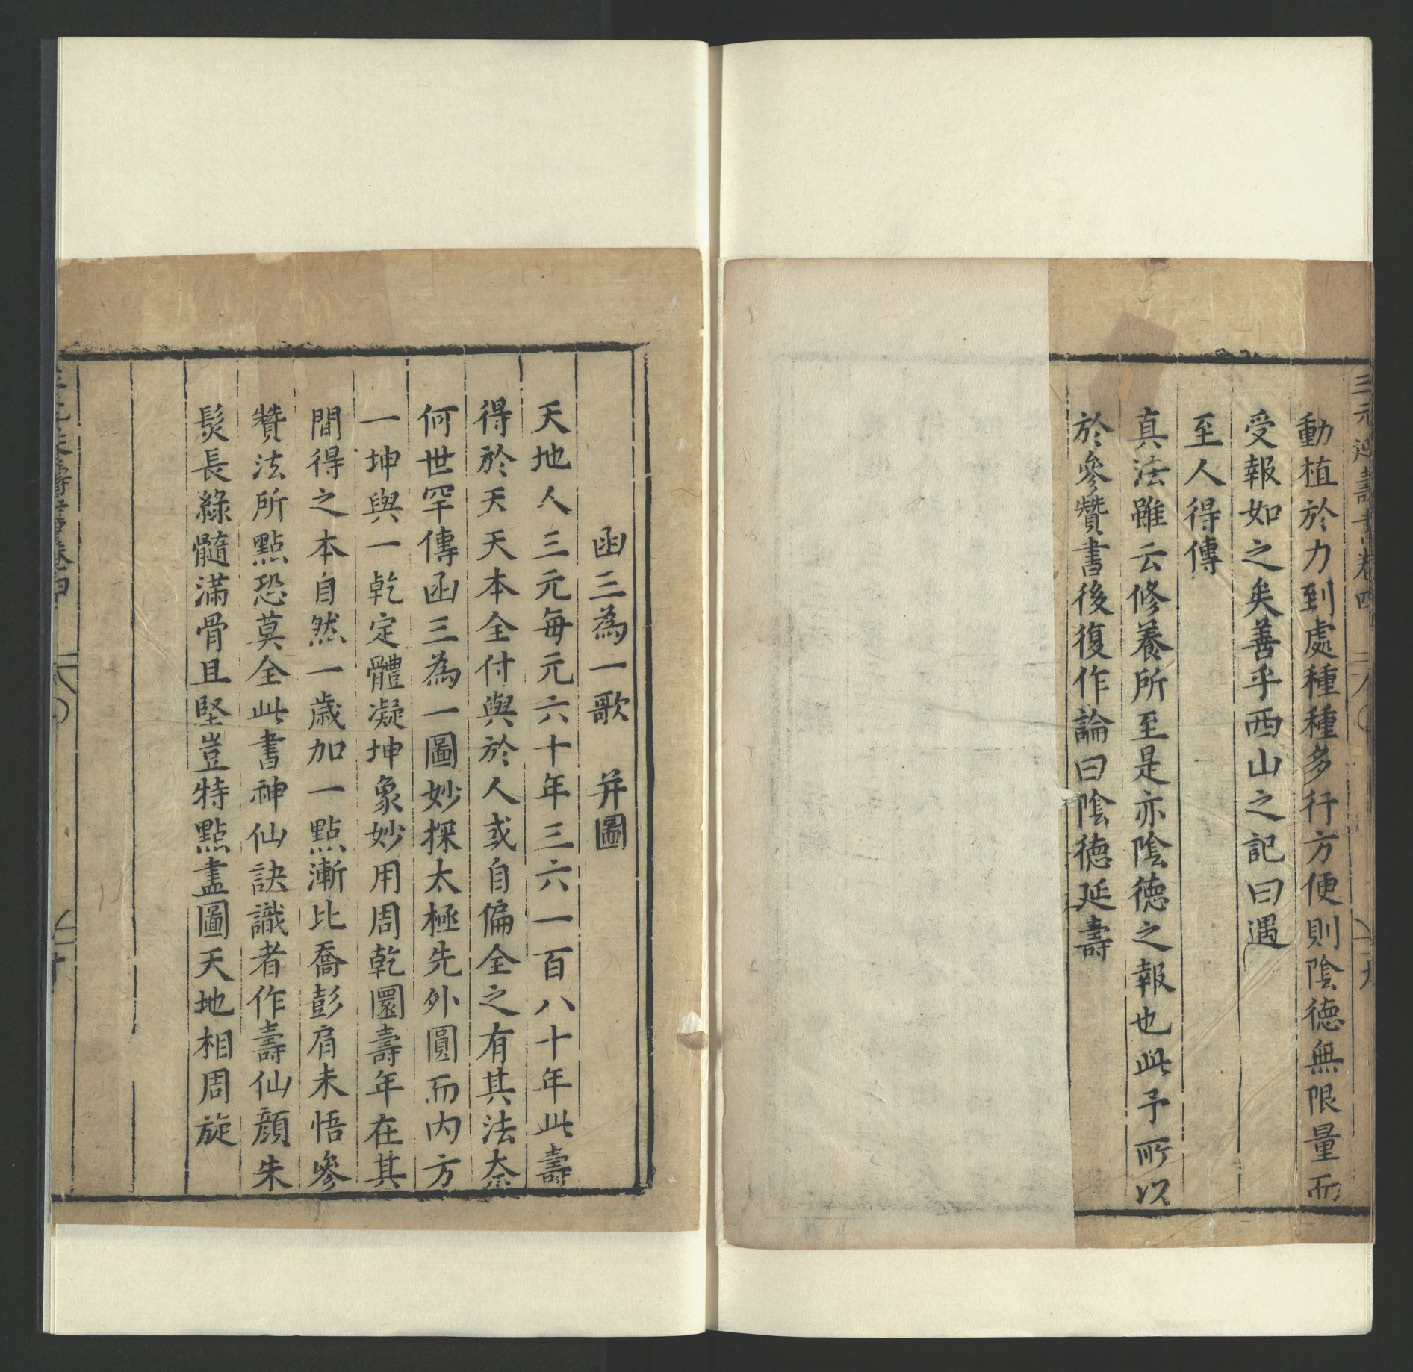 三元延壽書卷四
動植於力到處種種多行方便則陰德無限量而
受報如之矣善乎西山之記曰遇
至人得傳
真法雖云修養所至是亦陰德之報也此予所以
於參贊書後復作論曰陰德延壽
函三為一歌 并圖
天地人三元每元六十年三六一百八十年此壽
得於天天本全付與於人或自偏全之有其法柰
何世罕傳函三為一圖妙探太極先外圓而內方
一坤與一乾定體凝坤象妙用周乾圜壽年在其
間得之本自然一歲加一點漸比喬彭肩未悟參
贊法所點恐莫全此書神仙訣識者作壽仙顏朱
髮長綠髓滿骨且堅豈特點盡圖天地相周旋